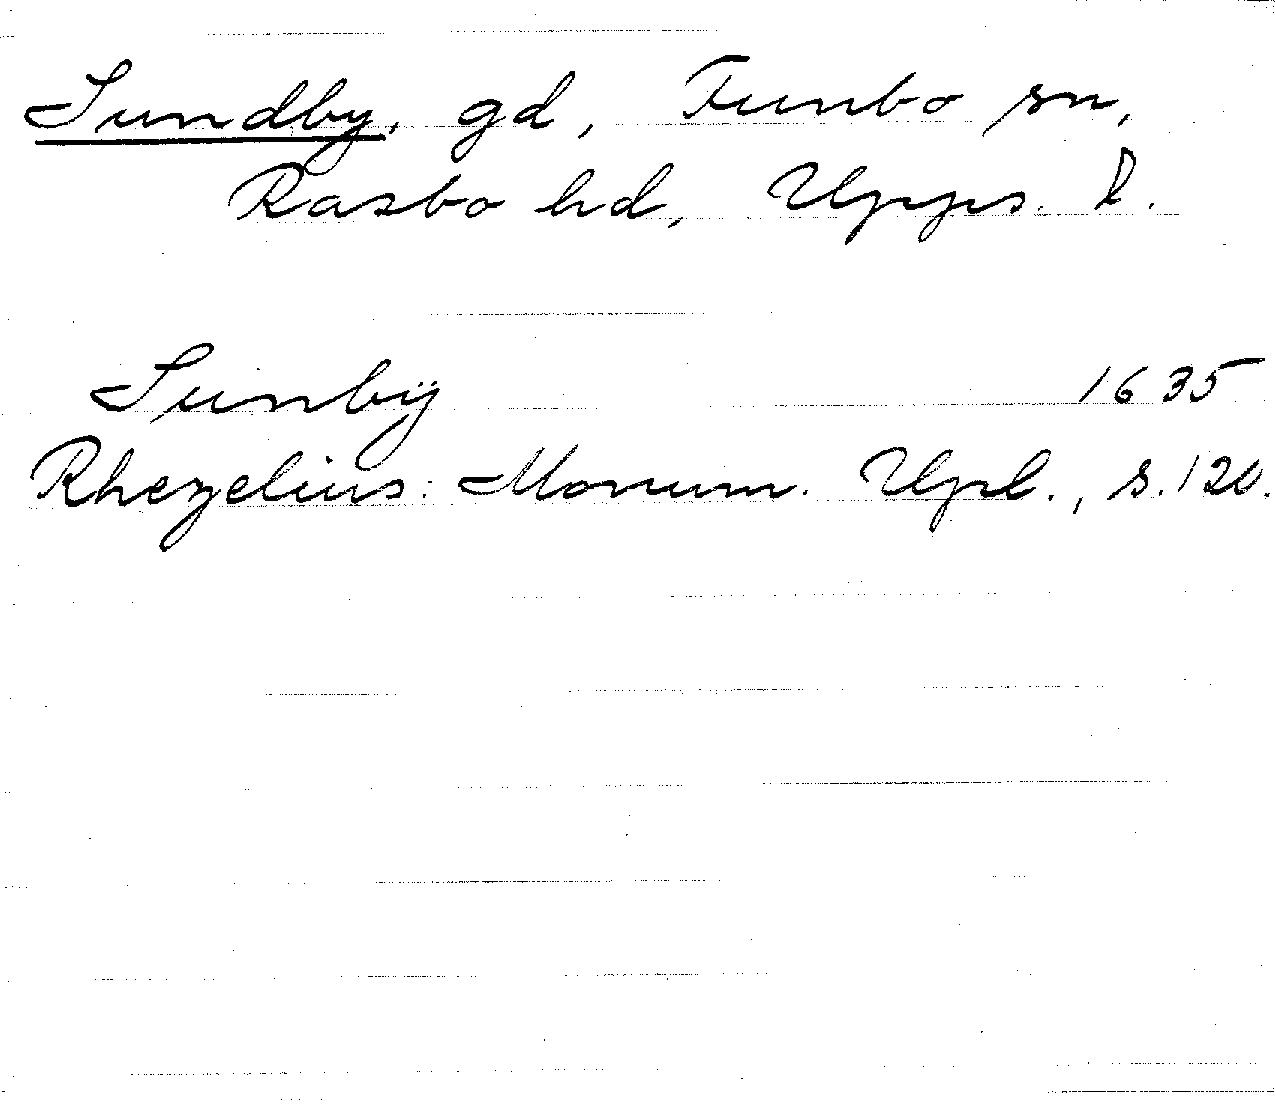 Sundby, gd, Funbo sn,
Rasbo hd, Upps. l.
Sunbÿ 1635
Rhezelius: Monum. Upl., s. 120.